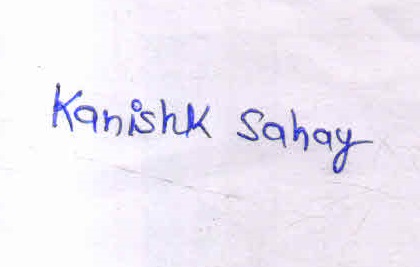 Kanishk Sahay